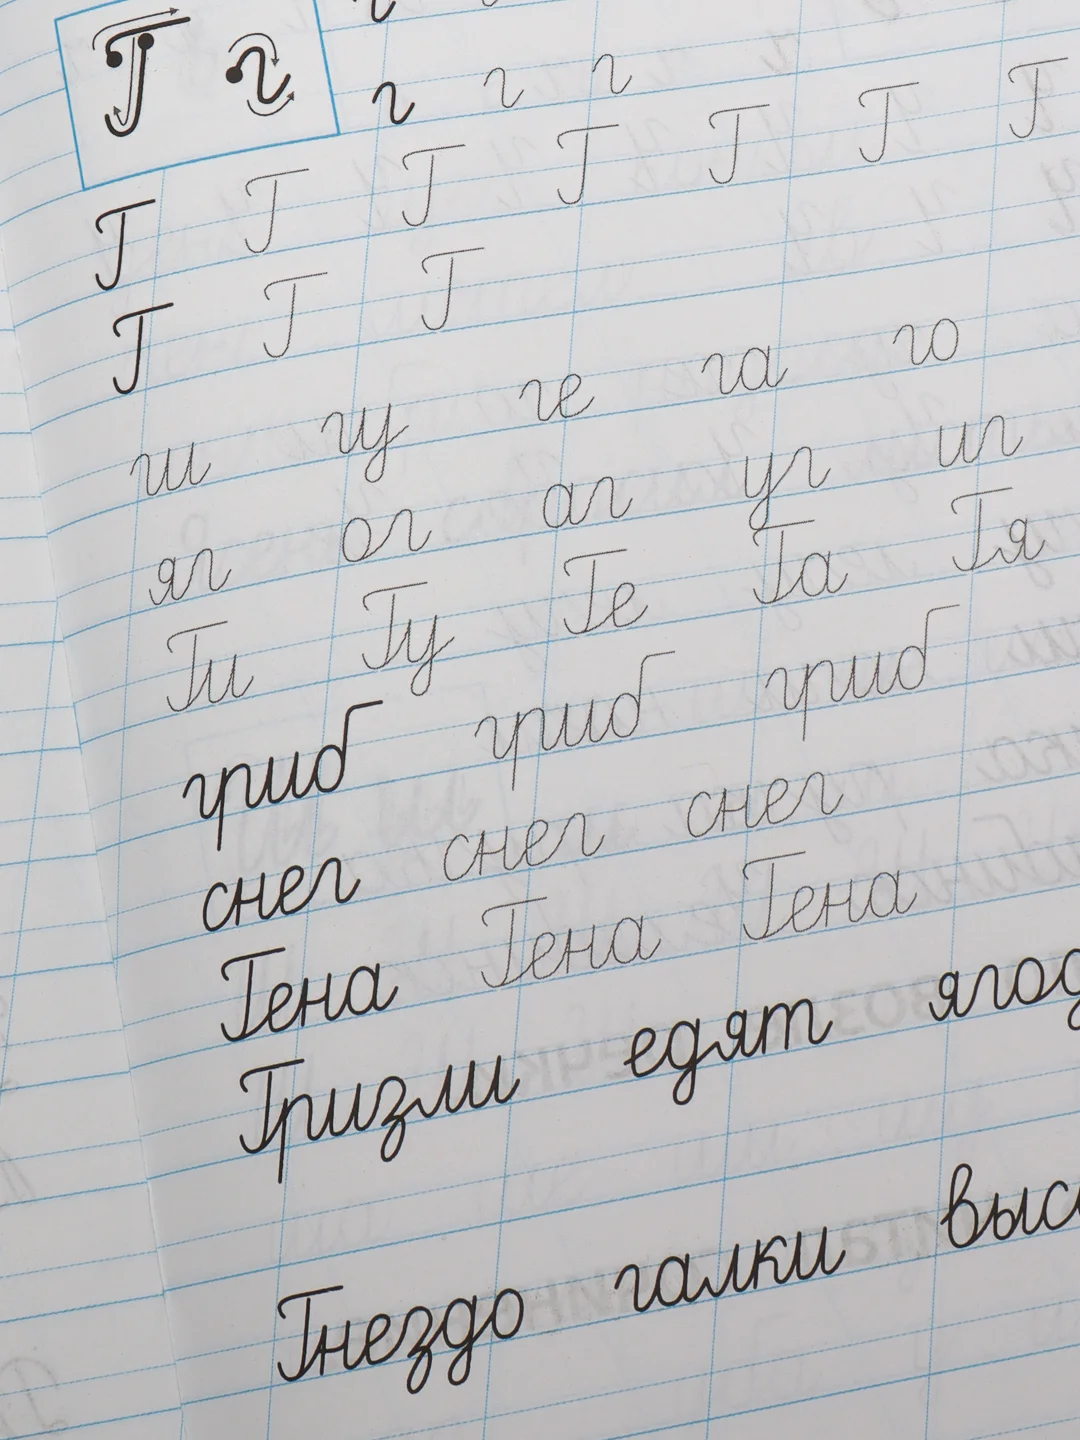 Г г
г г г
Г Г Г Г Г Г Г
Г Г Г
ги гу ге га го
яг ог аг уг иг
Ги Гу Ге Га Гя
гриб гриб гриб
снег снег снег
Гена Гена Гена
Гризли едят
Гнездо галки